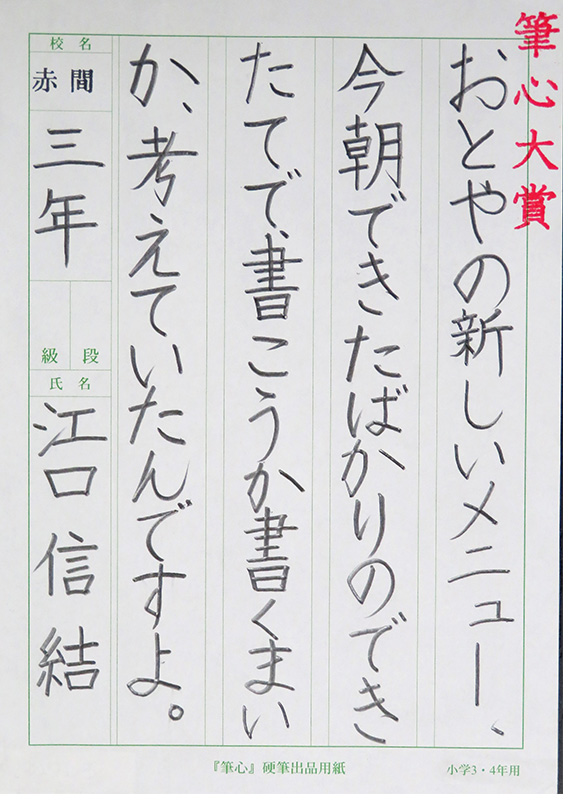 筆心大賞
おとやの新しいメニュー、
今朝できたばかりのでき
たてで、書こうか書くまい
か、考えていたんですよ。
校名
赤間
三年
級 段
氏名
江口信結
『筆心』硬筆出品用紙
小学3・4年用